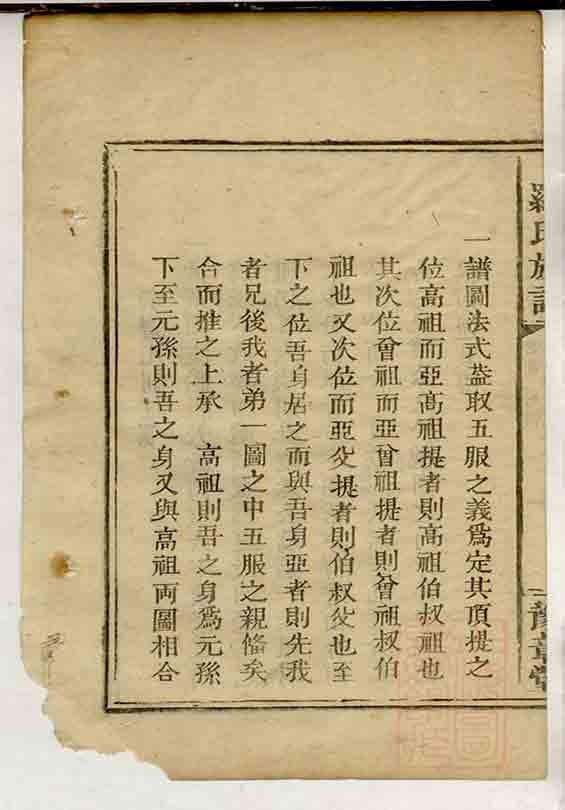 羅氏族譜
豫章堂
一譜圖法式葢取五服之義爲定其頂提之
位高祖而亞高祖提者則高祖伯叔祖也
其次位曾祖而亞曾祖提者則曾祖叔伯
祖也又次位而亞父提者則伯叔父也至
下之位吾身居之而與吾身亞者則先我
者兄後我者弟一圖之中五服之親俻矣
合而推之上承 高祖則吾之身爲元孫
下至元孫則吾之身又與高祖両圖相合